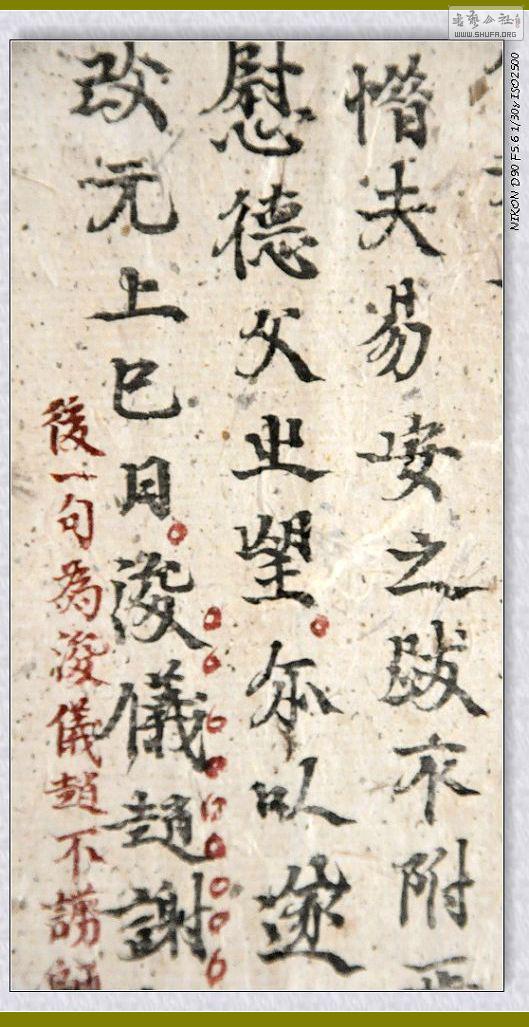 惜夫易安之跋不附
慰德父之望亦以遂
改元上巳日浚儀趙謝
後一句為浚儀趙不譾師
書藝公社
WWW.SHUFA.ORG
NIKON D90 F5.6 1/30v ISO2500